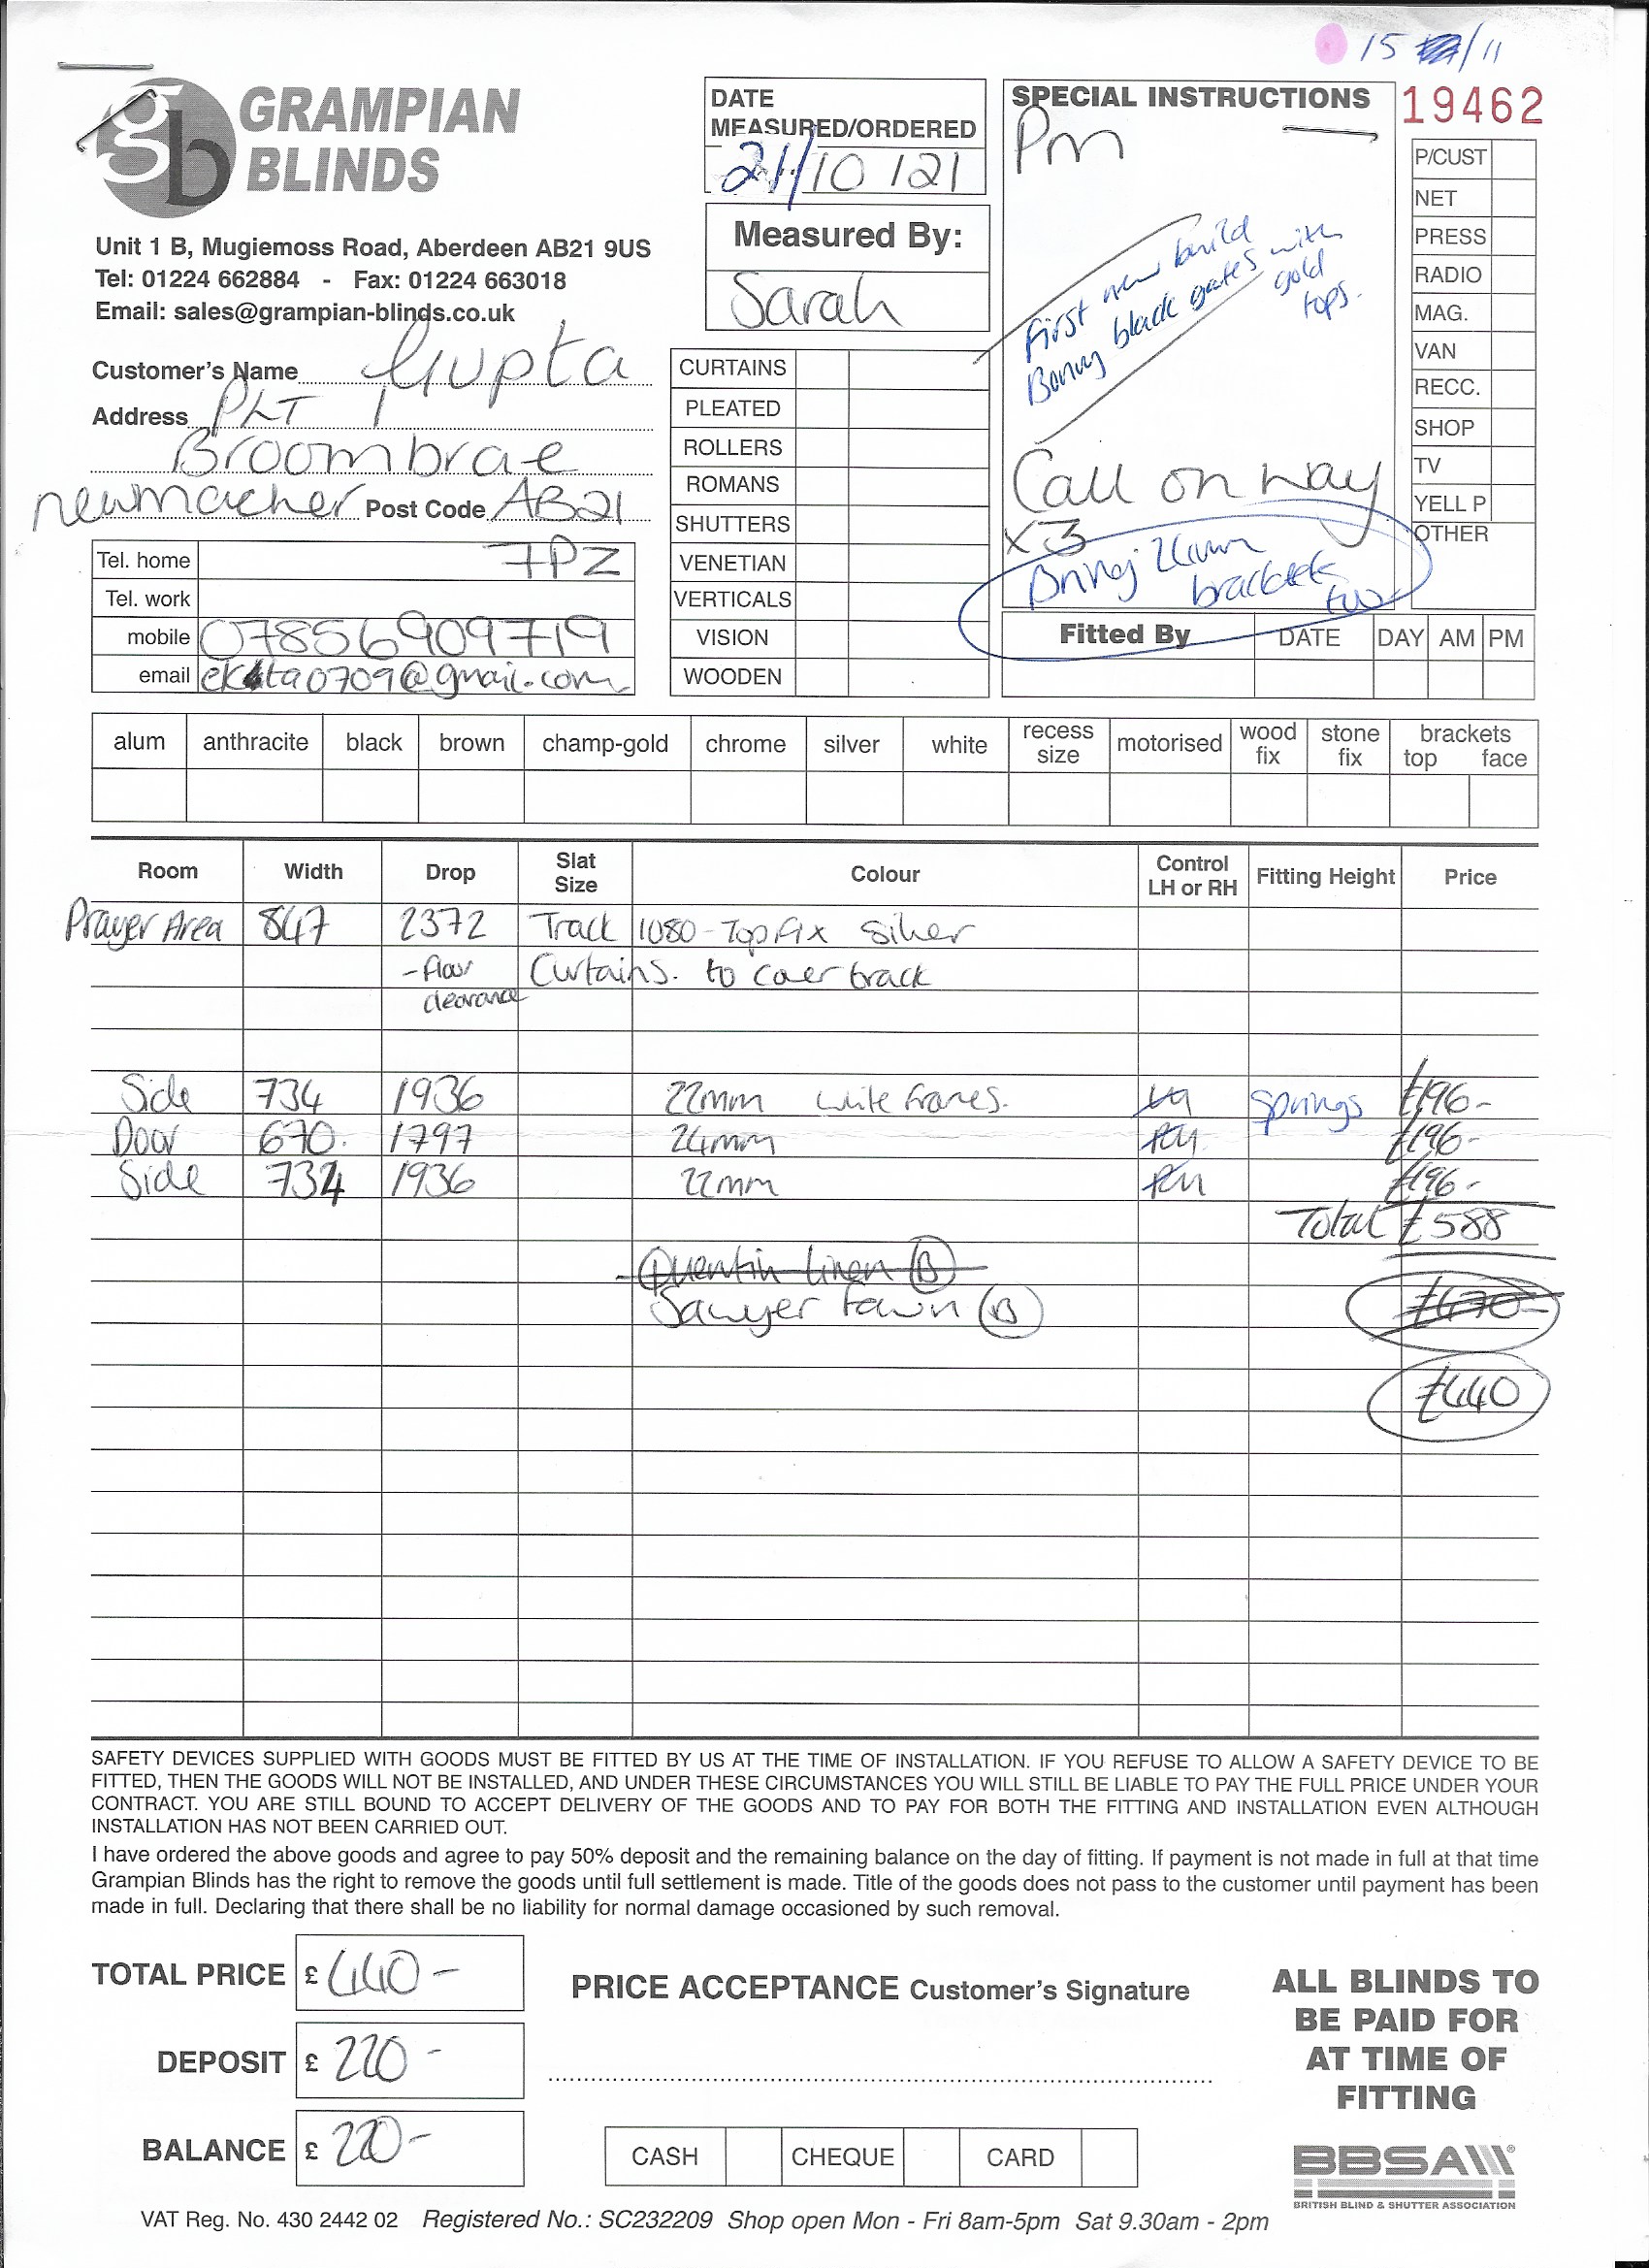 15 /11
GRAMPIAN
BLINDS
gb
Unit 1 B, Mugiemoss Road, Aberdeen AB21 9US
Tel: 01224 662884 - Fax: 01224 663018
Email: sales@grampian-blinds.co.uk
DATE
MEASURED/ORDERED
21/10/21
Measured By:
Sarah
SPECIAL INSTRUCTIONS
Pm
First new build
Bonny black gates with
gold
tops.
Call on way
x3
Bring 24mm
brackets
too
19462
P/CUST
NET
PRESS
RADIO
MAG.
VAN
RECC.
SHOP
TV
YELL P
OTHER
Customer's Name Gupta
Address PLT 1
Broombrae
newmacher Post Code AB21
7PZ
Tel. home
Tel. work
mobile 07856909719
email ekta0709@gmail.com
CURTAINS
PLEATED
ROLLERS
ROMANS
SHUTTERS
VENETIAN
VERTICALS
VISION
WOODEN
Fitted By DATE DAY AM PM
alum anthracite black brown champ-gold chrome silver white recess size motorised wood fix stone fix brackets top face
Room Width Drop Slat Size Colour Control LH or RH Fitting Height Price
Prayer Area 847 2372 Track 1080-Top fix Silver
-floor Curtains. to cover track
clearance
Side 734 1936 22mm white frames. LH Springs £196-
Door 670. 1797 24mm RH £196-
Side 734 1936 22mm RH £196-
Total £588
Quentin linen B
Sawyer fawn B £470-
£440
SAFETY DEVICES SUPPLIED WITH GOODS MUST BE FITTED BY US AT THE TIME OF INSTALLATION. IF YOU REFUSE TO ALLOW A SAFETY DEVICE TO BE
FITTED, THEN THE GOODS WILL NOT BE INSTALLED, AND UNDER THESE CIRCUMSTANCES YOU WILL STILL BE LIABLE TO PAY THE FULL PRICE UNDER YOUR
CONTRACT. YOU ARE STILL BOUND TO ACCEPT DELIVERY OF THE GOODS AND TO PAY FOR BOTH THE FITTING AND INSTALLATION EVEN ALTHOUGH
INSTALLATION HAS NOT BEEN CARRIED OUT.
I have ordered the above goods and agree to pay 50% deposit and the remaining balance on the day of fitting. If payment is not made in full at that time
Grampian Blinds has the right to remove the goods until full settlement is made. Title of the goods does not pass to the customer until payment has been
made in full. Declaring that there shall be no liability for normal damage occasioned by such removal.
TOTAL PRICE £ 440-
DEPOSIT £ 220-
BALANCE £ 220-
PRICE ACCEPTANCE Customer's Signature
CASH CHEQUE CARD
ALL BLINDS TO
BE PAID FOR
AT TIME OF
FITTING
BBSA
BRITISH BLIND & SHUTTER ASSOCIATION
VAT Reg. No. 430 2442 02 Registered No.: SC232209 Shop open Mon - Fri 8am-5pm Sat 9.30am - 2pm